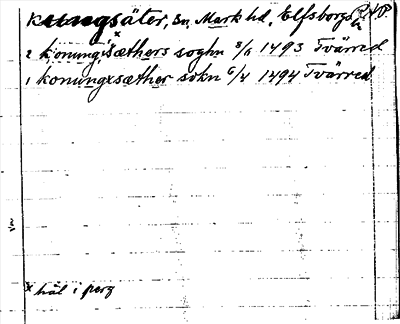 Kungsäter, Sn, Mark hd, Elfsborgs
2 konungisæthers soghn 8/6 1493 Tvärred
1 konungxsæther sokn 6/4 1494 Tvärred
x hål i perg